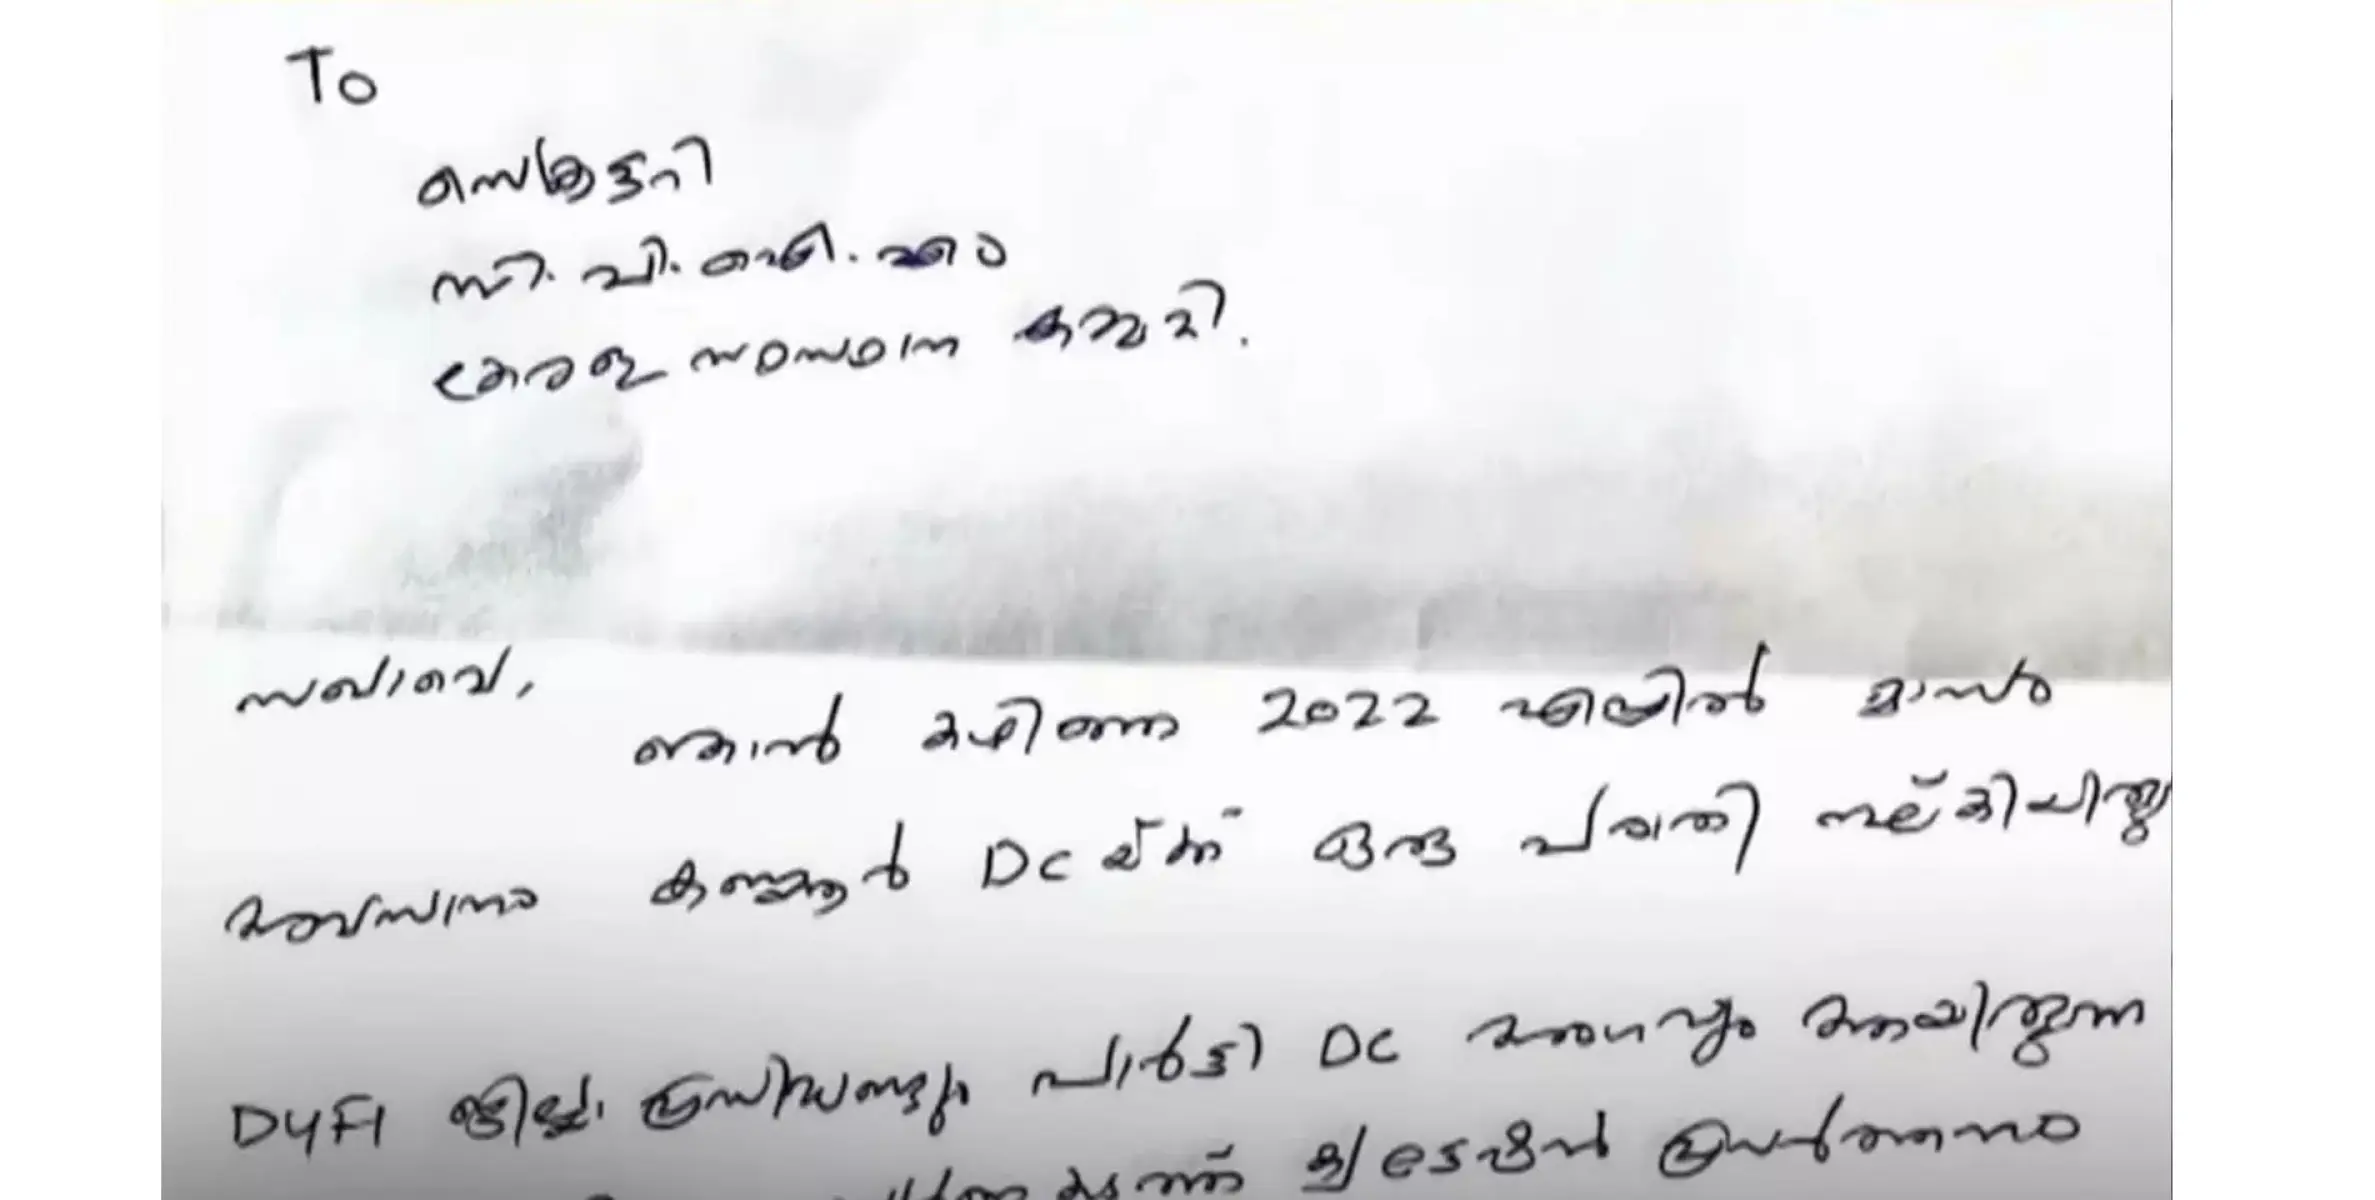 To
സെക്രട്ടറി
സി.പി.ഐ.എം
കേരള സംസ്ഥാന കമ്മറ്റി.
സഖാവെ,
ഞാൻ കഴിഞ്ഞ 2022 ഏപ്രിൽ മാസം
അവസാനം കണ്ണൂർ DC യ്ക്ക് ഒരു പരാതി നല്കിയിരുന്നു
DYFI ജില്ലാ പ്രസിഡണ്ടും പാർട്ടി DC അംഗവും ആയിരുന്ന
ക്വട്ടേഷൻ പ്രവർത്തനം